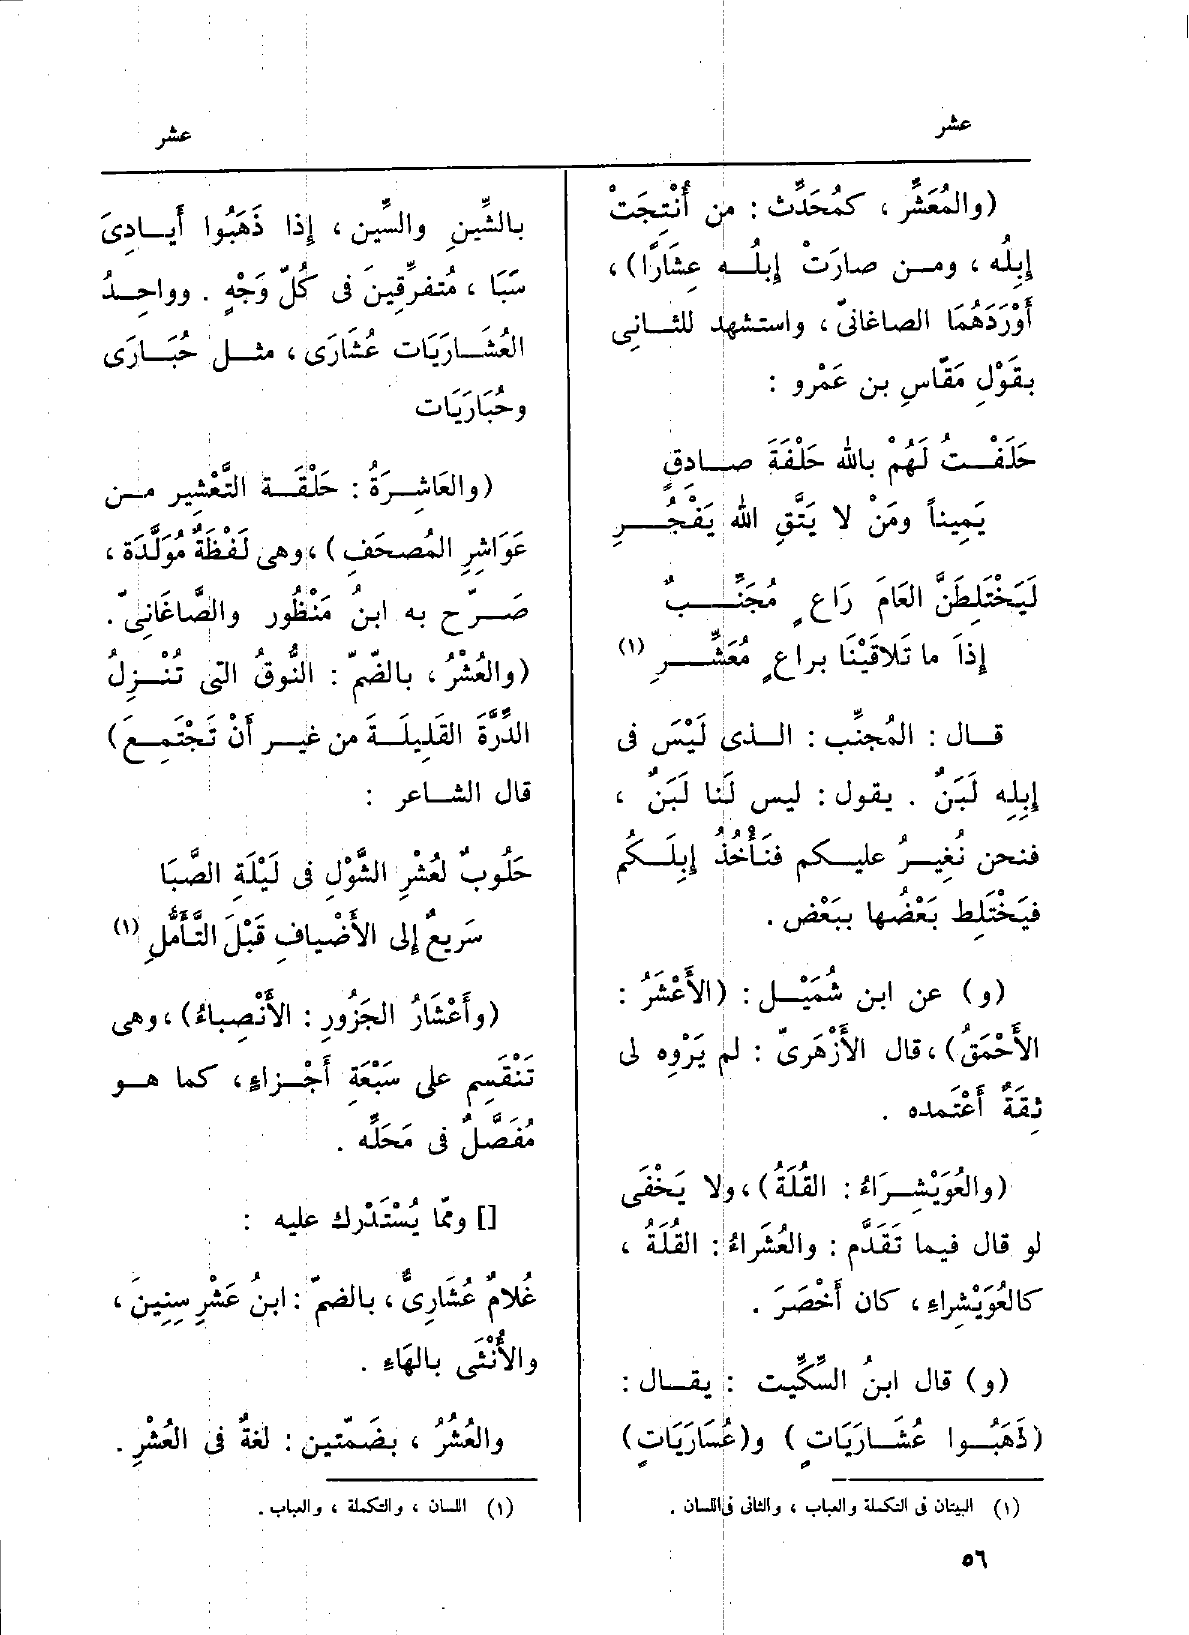 عشر
عشر
(والمُعَشِّر ، كمُحَدِّث : من أُنْتِجَتْ
إبِلُه ، ومـن صارَتْ إبلُـه عِشَارًا) ،
أَوْرَدَهُمَا الصاغانىّ ، واستشهد للثـانى
بقَوْلِ مَقّاسِ بن عَمْرو :
حَلَفْـتُ لَهُمْ بالله حَلْفَةَ صـادِقٍ
يَمِيناً ومَنْ لا يَتَّقِ اللهَ يَفْجُـرِ
لَيَخْتَلِطَنَّ العَامَ رَاعٍ مُجَنِّـبٌ
إذَا ما تَلاقَيْنَا براعٍ مُعَشِّـرِ (١)
قـال : المُجَنِّب : الـذى لَيْسَ فى
إبِلِه لَبَنٌ . يقول : ليس لَنا لَبَنٌ ،
فنحن نُغِيرُ عليـكم فنَأْخُذُ إبِلَـكُم
فيَخْتَلِط بَعْضُها ببَعْض .
(و) عن ابن شُمَيْـل : (الأَعْشَرُ :
الأَحْمَقُ) ، قال الأَزْهَرِىّ : لم يَرْوِه لى
ثِقَةٌ أَعْتَمده .
(والعُوَيْشِـرَاءُ : القُلَةُ) ، ولا يَخْفَى
لو قال فيما تَقَدَّم : والعُشَراءُ : القُلَةُ ،
كالعُوَيْشِراءِ ، كان أَخْصَرَ .
(و) قال ابنُ السِّكِّيت : يقـال :
(ذَهَبُـوا عُشَـارَيَاتٍ) و(عُسَارَيَاتٍ)
(١) البيتان فى التكملة والعباب ، والثانى فى اللسان .
بالشِّينِ والسِّين ، إذا ذَهَبُوا أَيـادِىَ
سَبَا ، مُتَفرِّقِينَ فى كُلّ وَجْهٍ . وواحِـدُ
العُشَـارَيَات عُشَارَى ، مثـل حُبَـارَى
وحُبَارَيَات
(والعَاشِـرَةُ : حَلْقَـة التَّعْشِير مـن
عَوَاشِرِ المُصحَفِ) ، وهى لَفْظَةٌ مُوَلَّدَة ،
صَـرّح به ابنُ مَنْظُور والصَّاغَانِىّ .
(والعُشْرُ ، بالضّمّ : النُّوقُ التى تُنْـزِلُ
الدِّرَّةَ القَلِيلَـةَ من غيـر أَنْ تَجْتَمِـعَ)
قال الشـاعر :
حَلُوبٌ لعُشْرِ الشَّوْلِ فى لَيْلَةِ الصَّبَا
سَرِيعٌ إلى الأَضْيافِ قَبْلَ التَّأَمُّلِ (١)
(وأَعْشَارُ الجَزُورِ : الأَنْصِباءُ) ، وهى
تَنْقَسِم على سَبْعَةِ أَجْـزاءٍ ، كما هـو
مُفَصَّلٌ فى مَحَلِّه .
[] وممّا يُسْتَدْرك عليه :
غُلامٌ عُشَارِىٌّ ، بالضمّ : ابنُ عَشْرِ سِنِينَ ،
والأُنْثَى بالهَاءِ .
والعُشُرُ ، بضَمّتين : لغةٌ فى العُشْرِ .
(١) اللسان ، والتكملة ، والعباب .
٥٦